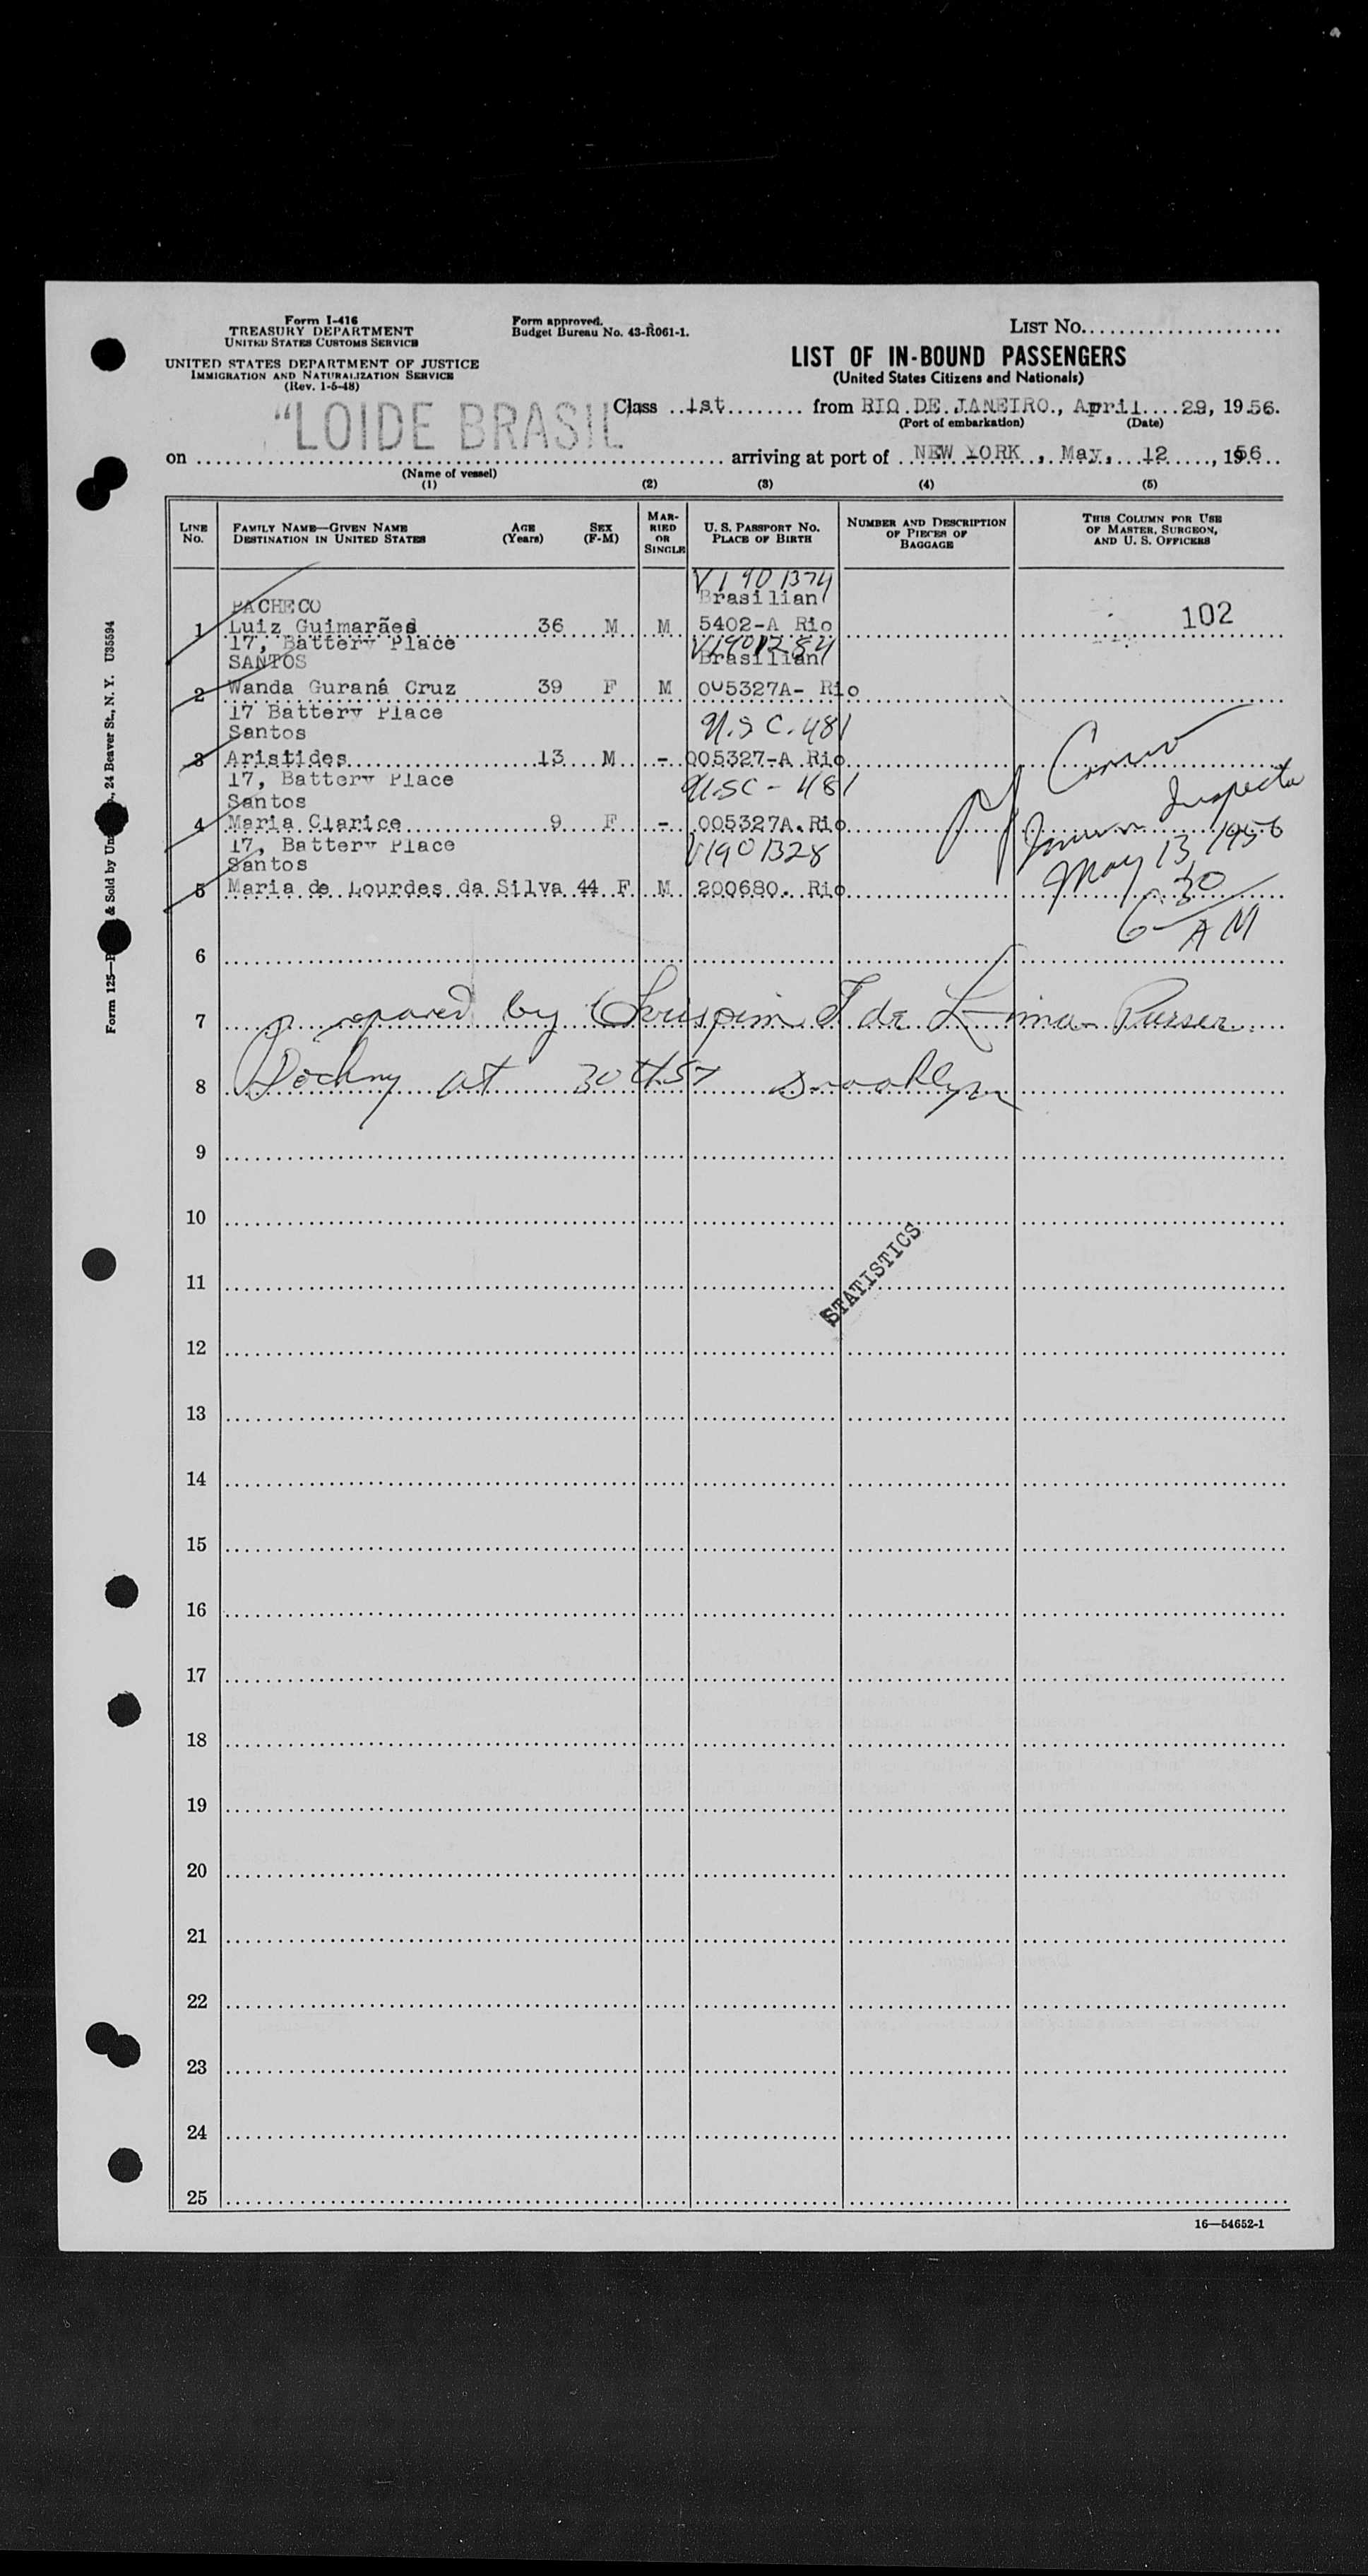 Form I-416
TREASURY DEPARTMENT
UNITED STATES CUSTOMS SERVICE
UNITED STATES DEPARTMENT OF JUSTICE
IMMIGRATION AND NATURALIZATION SERVICE
(Rev. 1-5-48)
Form approved.
Budget Bureau No. 43-R061-1.
LIST NO.
LIST OF IN-BOUND PASSENGERS
(United States Citizens and Nationals)
"LOIDE BRASIL
Class 1st from RIO DE JANEIRO., April 29, 1956.
(Port of embarkation) (Date)
on arriving at port of NEW YORK, May, 12, 1956
(Name of vessel)
(1) (2) (3) (4) (5)
LINE NO.
FAMILY NAME—GIVEN NAME
DESTINATION IN UNITED STATES
AGE (Years)
SEX (F-M)
MARRIED OR SINGLE
U. S. PASSPORT NO.
PLACE OF BIRTH
NUMBER AND DESCRIPTION OF PIECES OF BAGGAGE
THIS COLUMN FOR USE OF MASTER, SURGEON, AND U. S. OFFICERS
V1901374
PACHECO Brasilian
1 Luiz Guimarães 36 M M 5402-A Rio 102
17, Battery Place V1901284
SANTOS Brasilian
2 Wanda Guraná Cruz 39 F M 005327A- Rio
17 Battery Place
Santos U.S C. 481
3 Aristides 13 M - 005327-A Rio
17, Battery Place
Santos U.SC - 481
4 Maria Clarice 9 F - 005327A.Rio
17, Battery Place V1901328
Santos
5 Maria de Lourdes da Silva 44 F M 200680. Rio
Inspector
May 13, 1956
6 30
AM
6
7 Prepared by Chrispim F de Lima Purser
8 Docking at 30th St Brooklyn
9
10
11
STATISTICS
12
13
14
15
16
17
18
19
20
21
22
23
24
25
16—54652-1
24 Beaver St., N. Y. U35594
Form 125— & Sold by